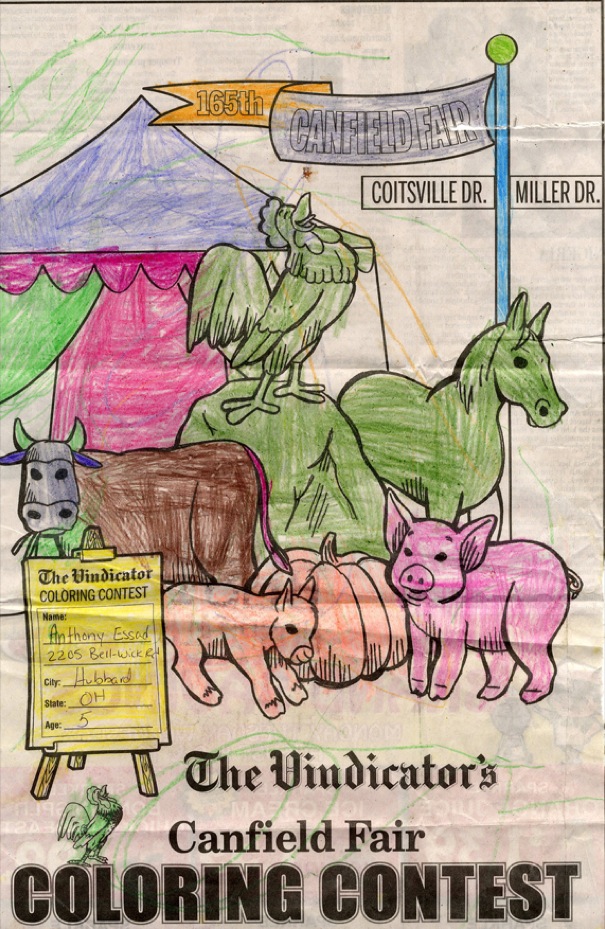 165th
CANFIELD FAIR
COITSVILLE DR.
MILLER DR.
The Vindicator
COLORING CONTEST
Name:
Anthony Essad
2205 Bell-wick Rd
City: Hubbard
State: OH
Age: 5
The Vindicator's
Canfield Fair
COLORING CONTEST